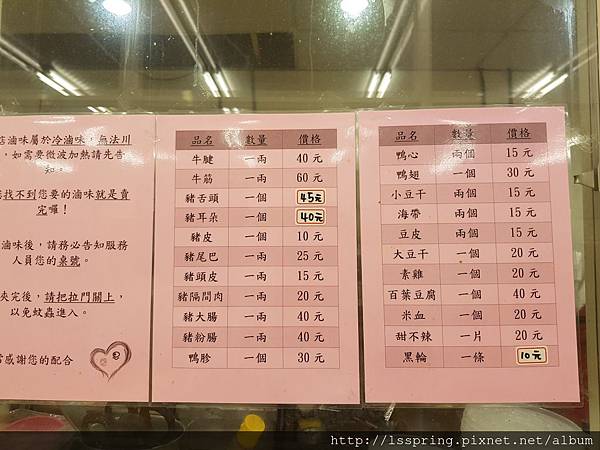 店滷味屬於冷滷味，無法川
，如需要微波加熱請先告
知。
找不到您要的滷味就是賣
完囉！
滷味後，請務必告知服務
人員您的桌號。
夾完後，請把拉門關上，
以免蚊蟲進入。
感謝您的配合
品名 數量 價格
牛腱 一兩 40 元
牛筋 一兩 60 元
豬舌頭 一個 45元
豬耳朵 一個 40元
豬皮 一個 10 元
豬尾巴 一兩 25 元
豬頭皮 一兩 15 元
豬隔間肉 一兩 20 元
豬大腸 一兩 40 元
豬粉腸 一兩 40 元
鴨胗 一個 30 元
品名 數量 價格
鴨心 兩個 15 元
鴨翅 一個 30 元
小豆干 兩個 15 元
海帶 兩個 15 元
豆皮 兩個 15 元
大豆干 一個 20 元
素雞 一個 20 元
百葉豆腐 一個 40 元
米血 一個 20 元
甜不辣 一片 20 元
黑輪 一條 10元
http://lsspring.pixnet.net/album